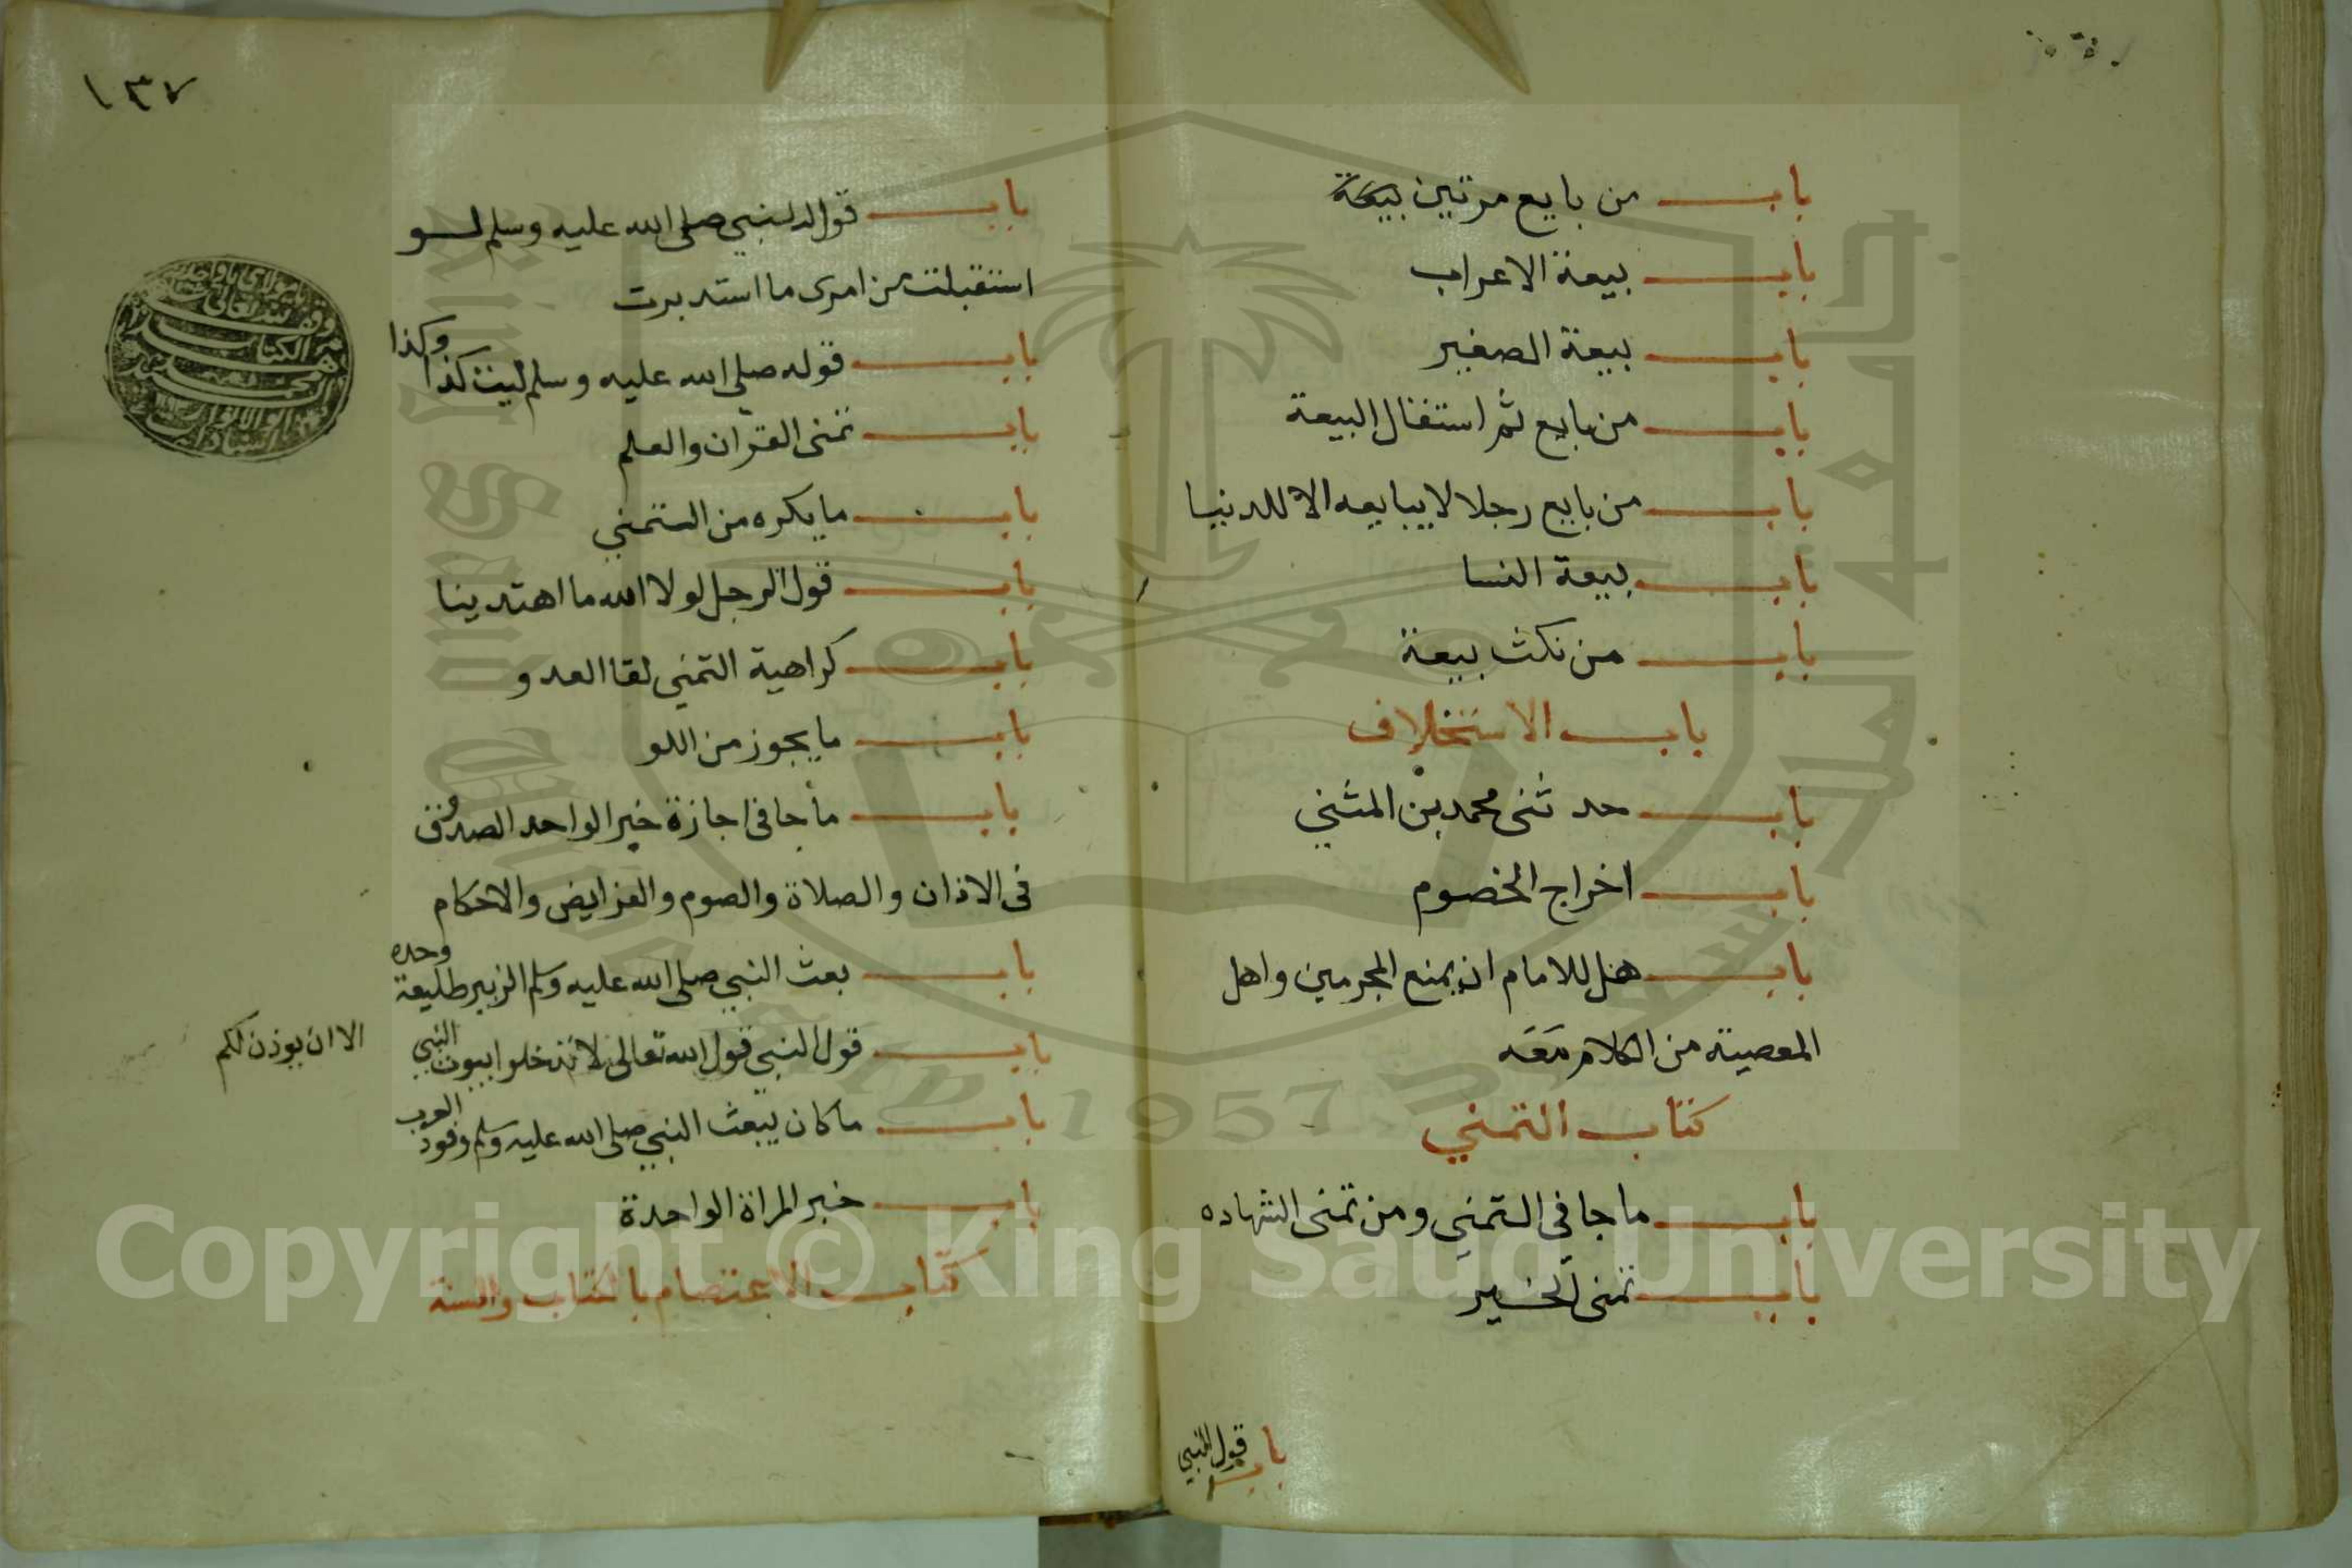 باب من بايع مرتين بيعة
باب بيعة الاعراب
باب بيعة الصغير
باب من بايع ثم استقال البيعة
باب من بايع رجلا لا يبايعه الا للدنيا
باب بيعة النسا
باب من نكث بيعة
باب الاستخلاف
باب حدثنى محمد بن المثني
باب اخراج الخصوم
باب هل للامام ان يمنع المجرمين واهل
المعصية من الكلام معه
كتاب التمني
باب ما جا في التمني ومن تمنى الشهاده
باب تمنى الخير
باب قول النبي
١٣٧
باب قول النبي صلى الله عليه وسلم لو
استقبلت من امرى ما استدبرت
باب قوله صلى الله عليه وسلم ليت كذا وكذا
باب تمنى القران والعلم
باب ما يكره من التمني
باب قول الرجل لولا الله ما اهتدينا
باب كراهية التمني لقا العدو
باب ما يجوز من اللو
باب ما جا فى اجازة خبر الواحد الصدوق
فى الاذان والصلاة والصوم والفرايض والاحكام
باب بعث النبي صلى الله عليه وسلم الزبير طليعة وحده
باب قول النبي قول الله تعالى لا تدخلوا بيوت النبي
الا ان يوذن لكم
باب ما كان يبعث النبي صلى الله عليه وسلم وفود العرب
باب خبر المراة الواحدة
كتاب الاعتصام بالكتاب والسنة
وقف لله تعالى
الكتاب
1957
Copyright © King Saud University